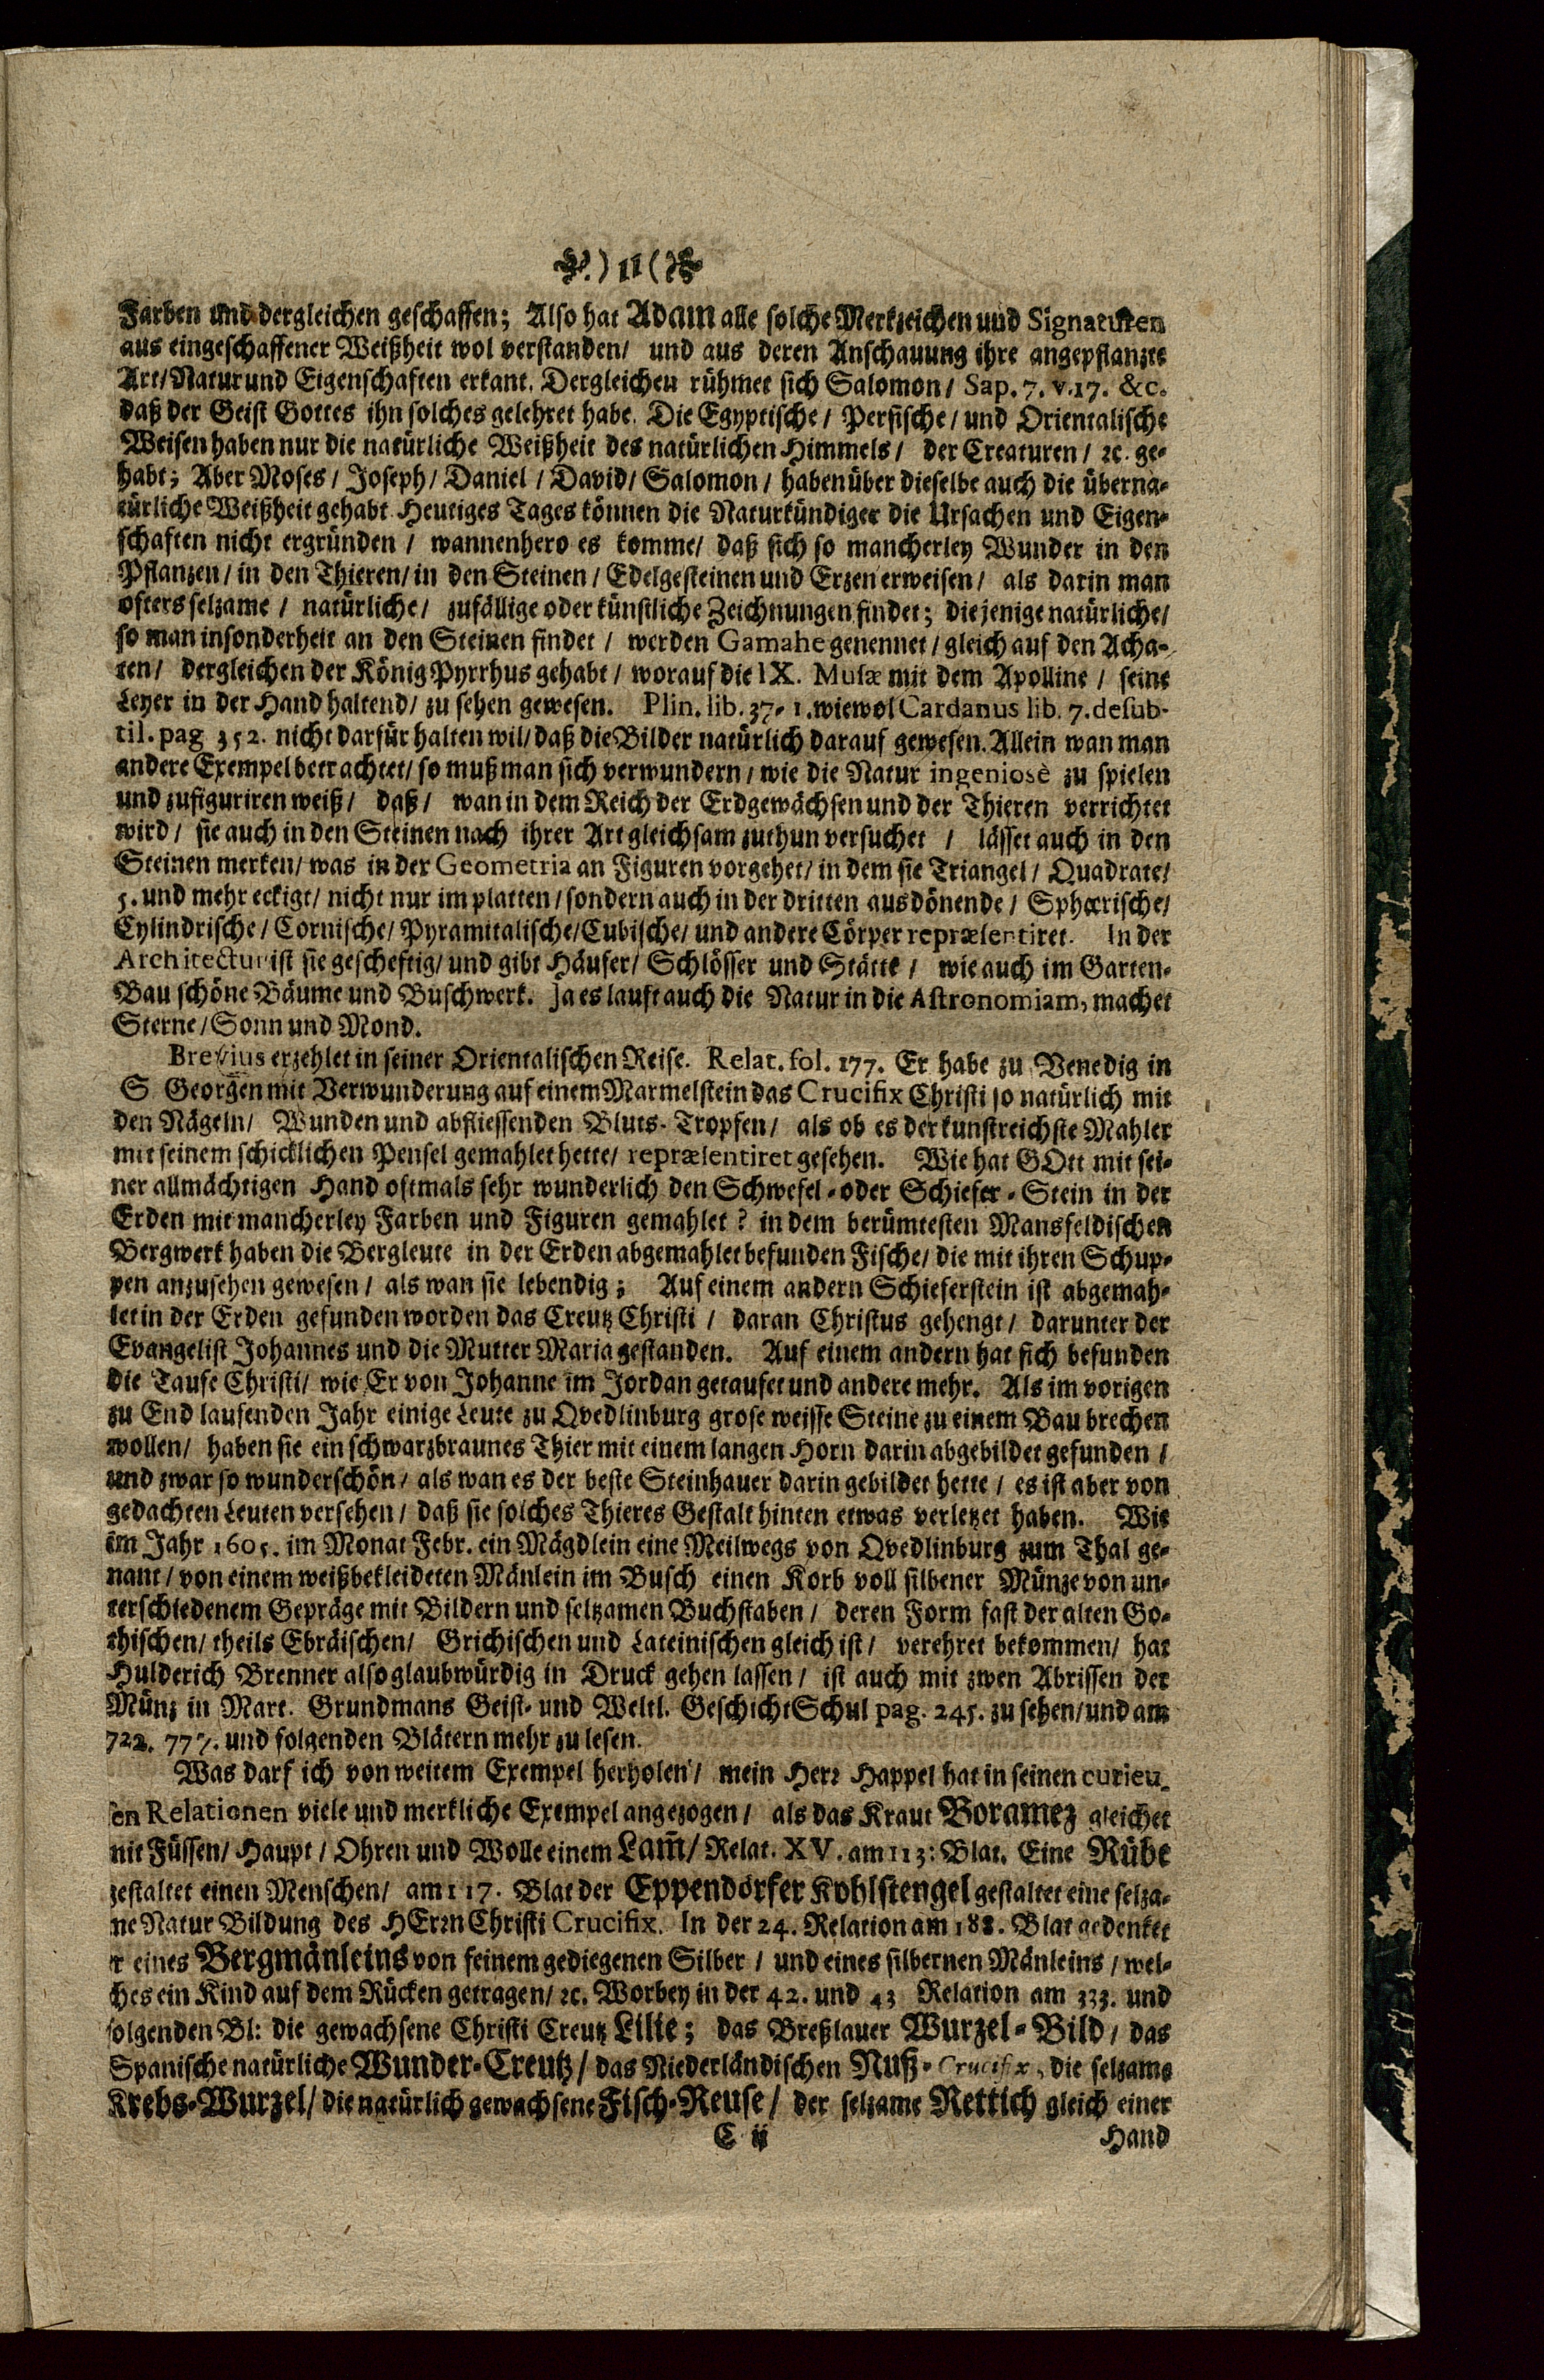 ) 11 (
Farben und dergleichen geschaffen; Also hat Adam alle solche Merkzeichen und Signaturen
aus eingeschaffener Weißheit wol verstanden/ und aus deren Anschauung ihre angepflanzte
Art/Natur und Eigenschaften erkant. Dergleichen rühmet sich Salomon/ Sap. 7. v. 17. &c.
daß der Geist Gottes ihn solches gelehret habe. Die Egyptische/ Persische/ und Orientalische
Weisen haben nur die natürliche Weißheit des natürlichen Himmels/ der Creaturen/ ꝛc. ge-
habt; Aber Moses/ Joseph/ Daniel/ David/ Salomon/ haben über dieselbe auch die überna-
türliche Weißheit gehabt. Heutiges Tages können die Naturkündiger die Ursachen und Eigen-
schaften nicht ergründen/ wannenhero es komme/ daß sich so mancherley Wunder in den
Pflanzen/ in den Thieren/ in den Steinen/ Edelgesteinen und Erzen erweisen/ als darin man
ofters selzame/ natürliche/ zufällige oder künstliche Zeichnungen findet; diejenige natürliche/
so man insonderheit an den Steinen findet/ werden Gamahe genennet/ gleich auf den Acha-
ten/ dergleichen der König Pyrrhus gehabt/ worauf die IX. Musæ mit dem Apolline/ seine
Leyer in der Hand haltend/ zu sehen gewesen. Plin. lib. 37. 1. wiewol Cardanus lib. 7. de sub-
til. pag 352. nicht darfür halten wil/ daß die Bilder natürlich darauf gewesen. Allein wan man
andere Exempel betrachtet/ so muß man sich verwundern/ wie die Natur ingeniosè zu spielen
und zufiguriren weiß/ daß/ wan in dem Reich der Erdgewächsen und der Thieren verrichtet
wird/ sie auch in den Steinen nach ihrer Art gleichsam zuthun versuchet/ lässet auch in den
Steinen merken/ was in der Geometria an Figuren vorgehet/ in dem sie Triangel/ Quadrate/
5. und mehr eckigt/ nicht nur im platten/ sondern auch in der dritten ausdönende/ Sphærische/
Cylindrische/ Cornische/ Pyramitalische/Cubische/ und andere Cörper repræsentiret. In der
Architectur ist sie gescheftig/ und gibt Häuser/ Schlösser und Stätte/ wie auch im Garten-
Bau schöne Bäume und Buschwerk. Ja es lauft auch die Natur in die Astronomiam, machet
Sterne/ Sonn und Mond.
Brevius erzehlet in seiner Orientalischen Reise. Relat. fol. 177. Er habe zu Venedig in
S Georgen mit Verwunderung auf einem Marmelstein das Crucifix Christi so natürlich mit
den Nägeln/ Wunden und abfliessenden Bluts-Tropfen/ als ob es der kunstreichste Mahler
mit seinem schicklichen Pensel gemahlet hette/ repræsentiret gesehen. Wie hat GOtt mit sei-
ner allmächtigen Hand oftmals sehr wunderlich den Schwefel-oder Schiefer-Stein in der
Erden mit mancherley Farben und Figuren gemahlet? in dem berümtesten Mansfeldischen
Bergwerk haben die Bergleute in der Erden abgemahlet befunden Fische/ die mit ihren Schup-
pen anzusehen gewesen/ als wan sie lebendig; Auf einem andern Schieferstein ist abgemah-
let in der Erden gefunden worden das Creutz Christi/ daran Christus gehengt/ darunter der
Evangelist Johannes und die Mutter Maria gestanden. Auf einem andern hat sich befunden
die Taufe Christi/ wie Er von Johanne im Jordan getaufet und andere mehr. Als im vorigen
zu End laufenden Jahr einige Leute zu Qvedlinburg grose weisse Steine zu einem Bau brechen
wollen/ haben sie ein schwarzbraunes Thier mit einem langen Horn darin abgebildet gefunden/
und zwar so wunderschön/ als wan es der beste Steinhauer darin gebildet hette/ es ist aber von
gedachten Leuten versehen/ daß sie solches Thieres Gestalt hinten etwas verletzet haben. Wie
im Jahr 1605. im Monat Febr. ein Mägdlein eine Meilwegs von Qvedlinburg zum Thal ge-
nant/ von einem weißbekleideten Mänlein im Busch einen Korb voll silbener Münze von un-
terschiedenem Gepräge mit Bildern und seltzamen Buchstaben/ deren Form fast der alten Go-
thischen/ theils Ebräischen/ Grichischen und Lateinischen gleich ist/ verehret bekommen/ hat
Hulderich Brenner also glaubwürdig in Druck gehen lassen/ ist auch mit zwen Abrissen der
Münz in Mart. Grundmans Geist- und Weltl. GeschichtSchul pag. 245. zu sehen/ und am
722. 777. und folgenden Blätern mehr zu lesen.
Was darf ich von weitem Exempel herholen/ mein Herr Happel hat in seinen curieu-
sen Relationen viele und merkliche Exempel angezogen/ als das Kraut Boramez gleichet
mit Füssen/ Haupt/ Ohren und Wolle einem Lam̃/ Relat. XV. am 113: Blat. Eine Rübe
gestaltet einen Menschen/ am 117. Blat der Eppendorfer Kohlstengel gestaltet eine selza-
me Natur Bildung des HErrn Christi Crucifix. In der 24. Relation am 188. Blat gedenket
er eines Bergmänleins von feinem gediegenen Silber/ und eines silbernen Mänleins/ wel-
ches ein Kind auf dem Rücken getragen/ ꝛc. Worbey in der 42. und 43 Relation am 333. und
folgenden Bl: die gewachsene Christi Creutz Lilie; das Breßlauer Wurzel-Bild/ das
Spanische natürliche Wunder-Creutz/ das Niederländischen Nuß-Crucifix, die selzame
Krebs-Wurzel/ die natürlich gewachsene Fisch-Reuse/ der selzame Rettich gleich einer
C ij Hand